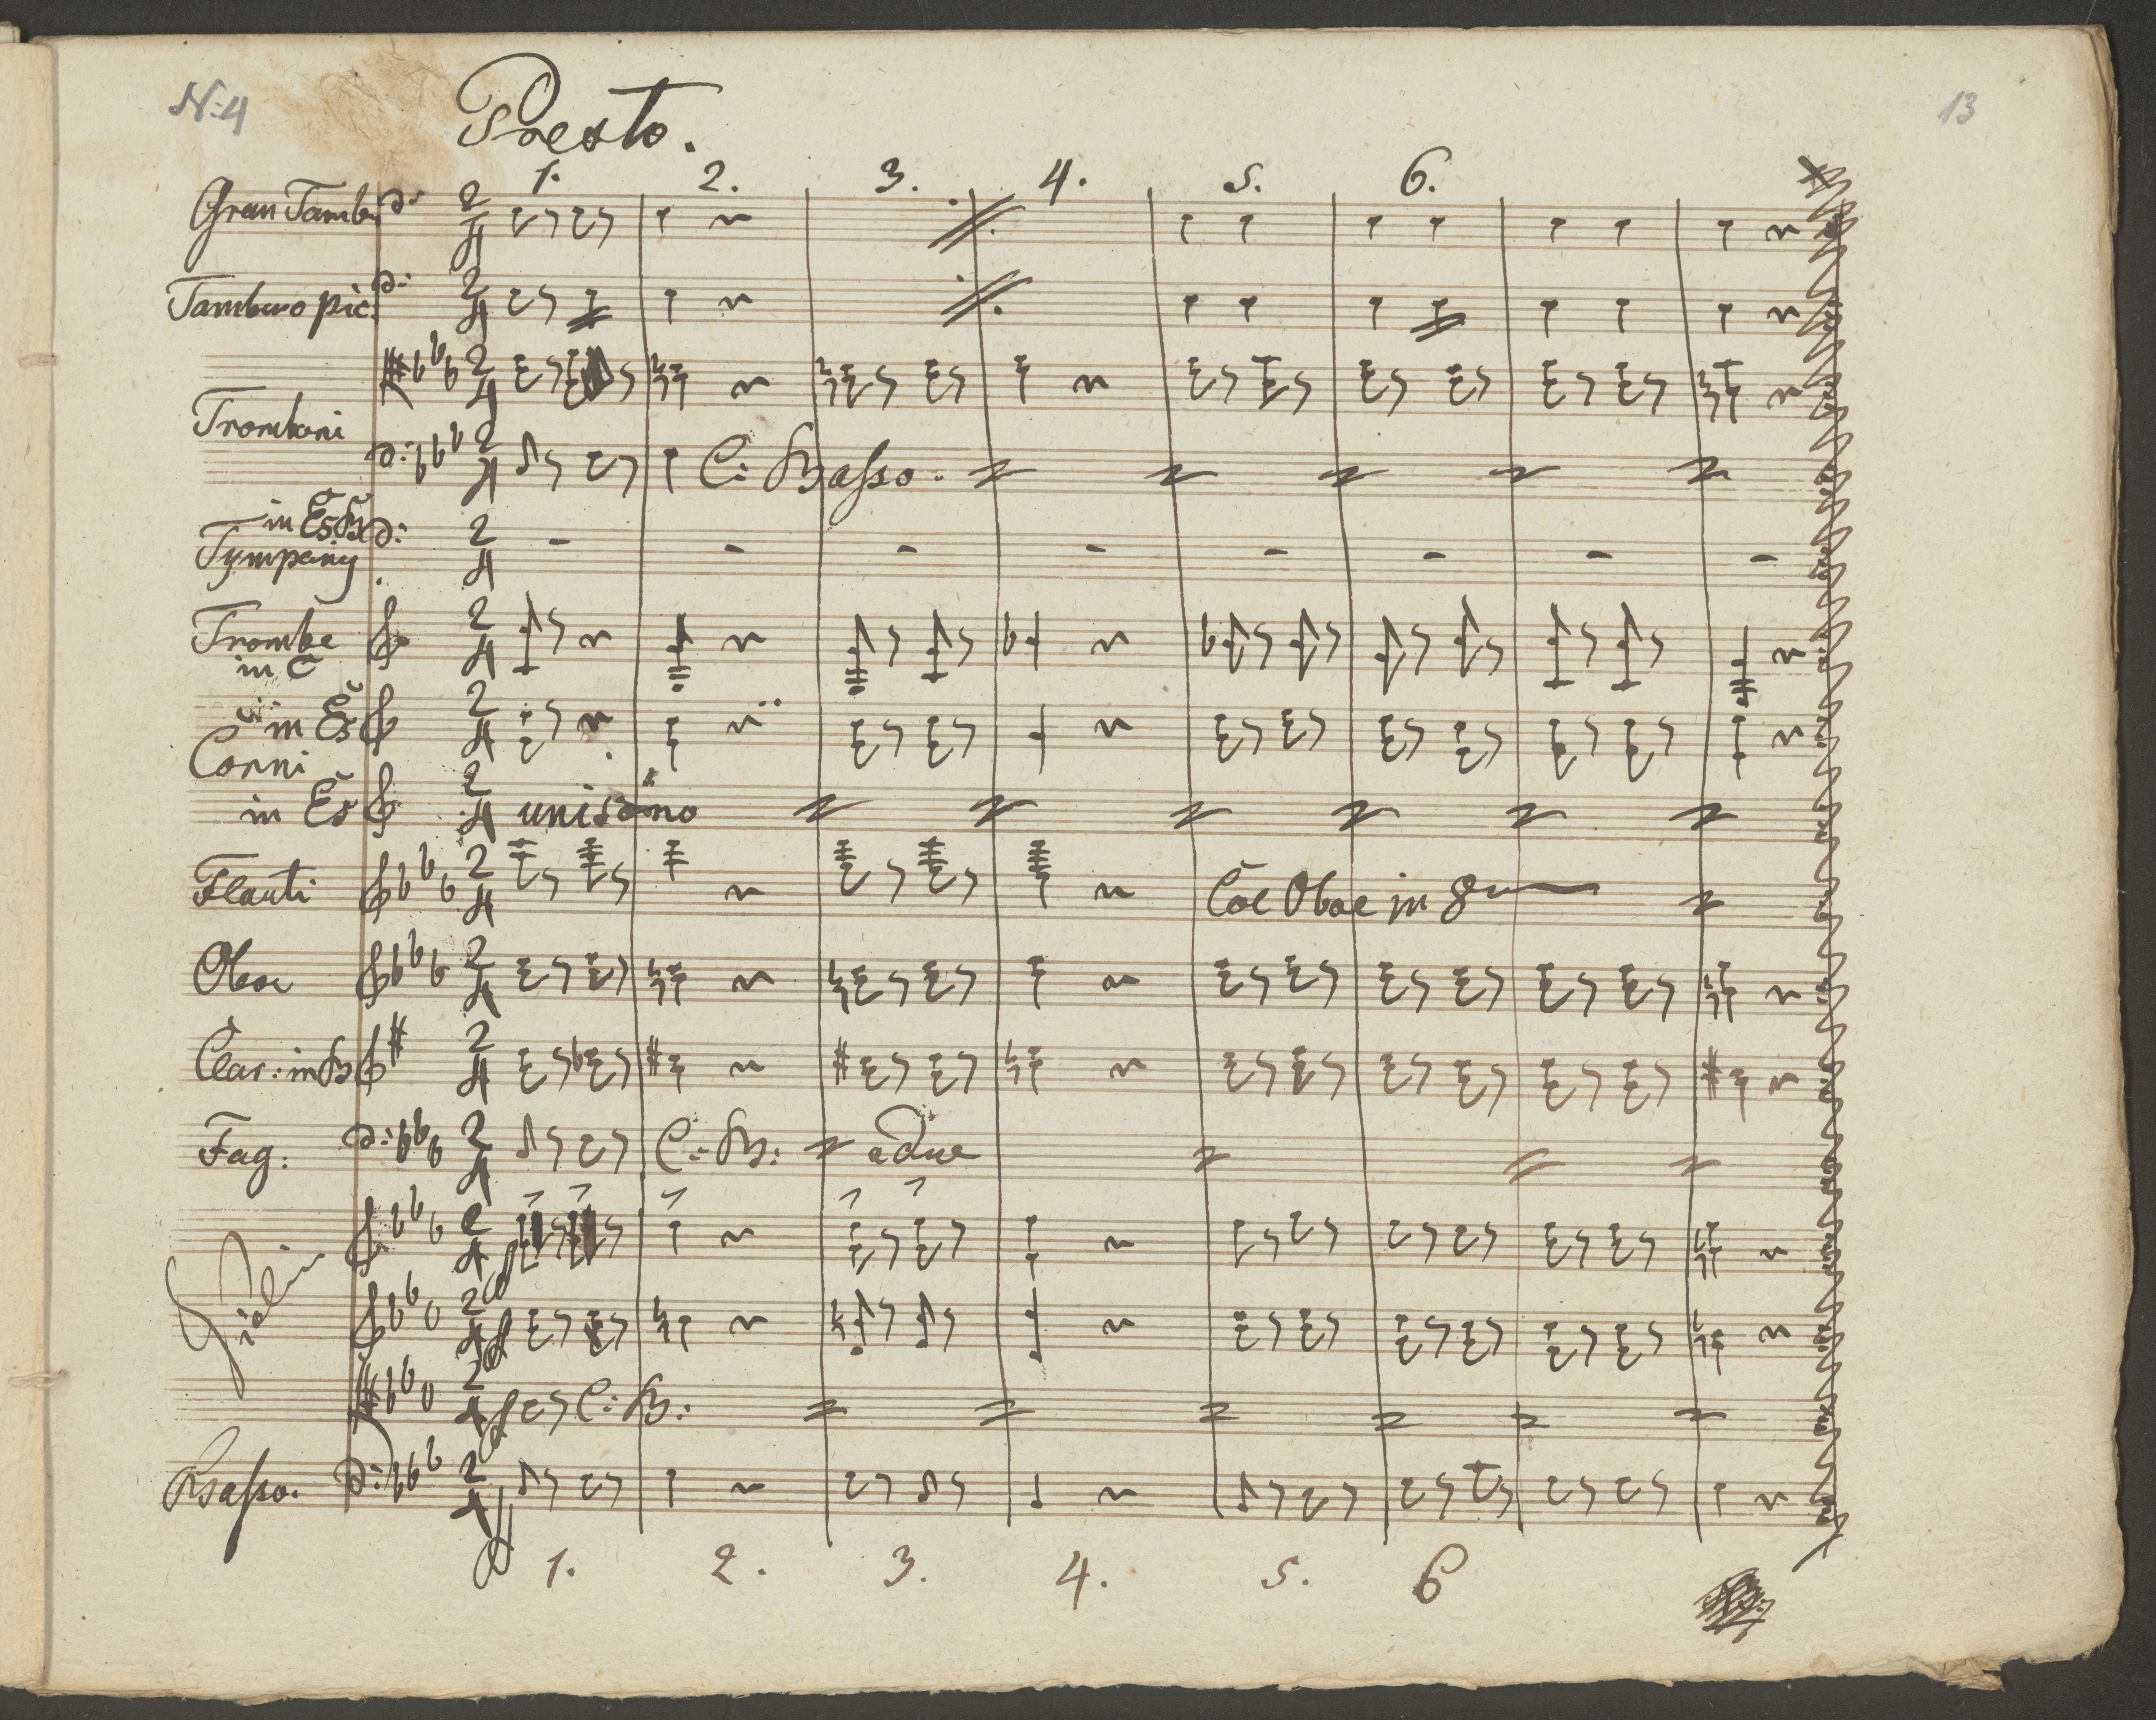 N: 4
13
Presto.
1. 2. 3. 4. 5. 6.
Gran Tamb:
Tamburo pic:
Tromboni
C: Basso.
in Es B
Tympany
Trombe
in C
in Es
Corni
in Es
unisono
Flauti
Coe Oboe in 8va
Oboe
Clar: in B
Fag:
C: B:
a due
Violin
ff
ff
ff
C: B:
Basso.
ff
1. 2. 3. 4. 5. 6